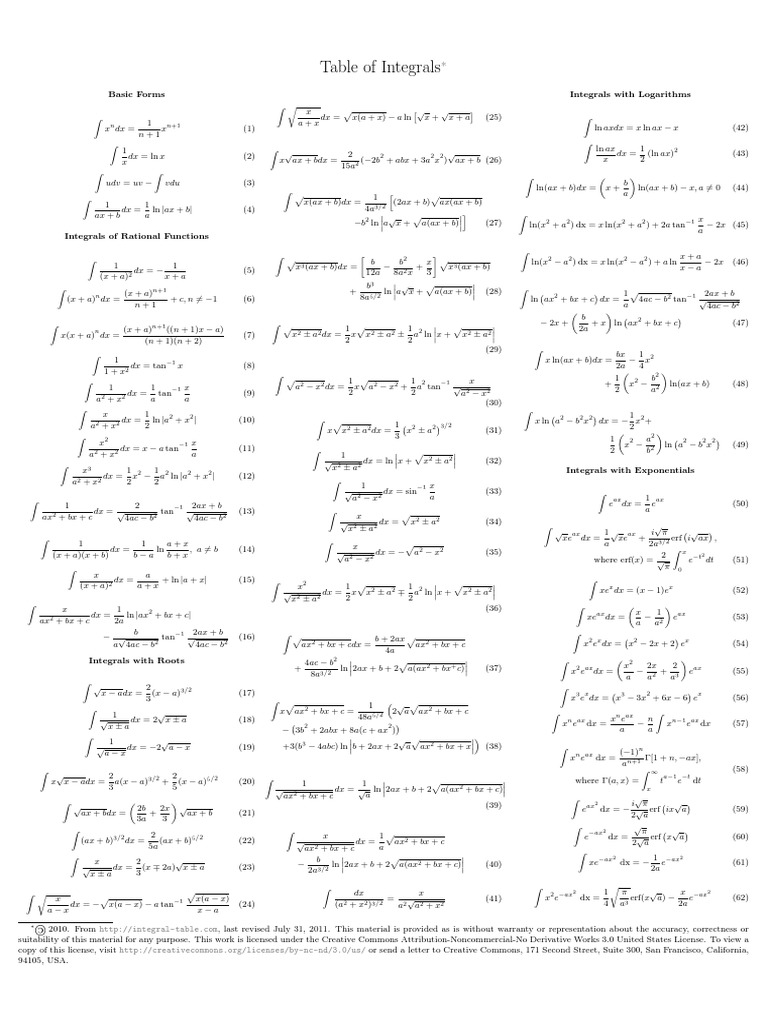 Table of Integrals*
Basic Forms
∫ xⁿdx = 1/(n+1) xⁿ⁺¹ (1)
∫ 1/x dx = ln x (2)
∫ udv = uv − ∫ vdu (3)
∫ 1/(ax+b) dx = 1/a ln|ax + b| (4)
Integrals of Rational Functions
∫ 1/(x+a)² dx = −1/(x+a) (5)
∫ (x + a)ⁿdx = (x+a)ⁿ⁺¹/(n+1) + c, n ≠ −1 (6)
∫ x(x + a)ⁿdx = (x+a)ⁿ⁺¹((n+1)x − a)/((n+1)(n+2)) (7)
∫ 1/(1+x²) dx = tan⁻¹ x (8)
∫ 1/(a²+x²) dx = 1/a tan⁻¹ x/a (9)
∫ x/(a²+x²) dx = 1/2 ln|a² + x²| (10)
∫ x²/(a²+x²) dx = x − a tan⁻¹ x/a (11)
∫ x³/(a²+x²) dx = 1/2 x² − 1/2 a² ln|a² + x²| (12)
∫ 1/(ax²+bx+c) dx = 2/√(4ac−b²) tan⁻¹ (2ax+b)/√(4ac−b²) (13)
∫ 1/((x+a)(x+b)) dx = 1/(b−a) ln (a+x)/(b+x), a ≠ b (14)
∫ x/(x+a)² dx = a/(a+x) + ln|a + x| (15)
∫ x/(ax²+bx+c) dx = 1/2a ln|ax² + bx + c|
− b/(a√(4ac−b²)) tan⁻¹ (2ax+b)/√(4ac−b²) (16)
Integrals with Roots
∫ √(x−a)dx = 2/3 (x − a)^(3/2) (17)
∫ 1/√(x±a) dx = 2√(x±a) (18)
∫ 1/√(a−x) dx = −2√(a−x) (19)
∫ x√(x−a)dx = 2/3 a(x − a)^(3/2) + 2/5 (x − a)^(5/2) (20)
∫ √(ax+b)dx = (2b/3a + 2x/3) √(ax+b) (21)
∫ (ax + b)^(3/2)dx = 2/5a (ax + b)^(5/2) (22)
∫ x/√(x±a) dx = 2/3 (x ∓ 2a)√(x±a) (23)
∫ √(x/(a−x)) dx = −√(x(a−x)) − a tan⁻¹ √(x(a−x))/(x−a) (24)
∫ √(x/(a+x)) dx = √(x(a+x)) − a ln [√x + √(x+a)] (25)
∫ x√(ax+b)dx = 2/15a² (−2b² + abx + 3a²x²)√(ax+b) (26)
∫ √(x(ax+b))dx = 1/4a^(3/2) [(2ax + b)√(ax(ax+b))
−b² ln |a√x + √(a(ax+b))|] (27)
∫ √(x³(ax+b))dx = [b/12a − b²/8a²x + x/3] √(x³(ax+b))
+ b³/8a^(5/2) ln |a√x + √(a(ax+b))| (28)
∫ √(x²±a²)dx = 1/2 x√(x²±a²) ± 1/2 a² ln |x + √(x²±a²)|
(29)
∫ √(a²−x²)dx = 1/2 x√(a²−x²) + 1/2 a² tan⁻¹ x/√(a²−x²)
(30)
∫ x√(x²±a²)dx = 1/3 (x² ± a²)^(3/2) (31)
∫ 1/√(x²±a²) dx = ln |x + √(x²±a²)| (32)
∫ 1/√(a²−x²) dx = sin⁻¹ x/a (33)
∫ x/√(x²±a²) dx = √(x²±a²) (34)
∫ x/√(a²−x²) dx = −√(a²−x²) (35)
∫ x²/√(x²±a²) dx = 1/2 x√(x²±a²) ∓ 1/2 a² ln |x + √(x²±a²)|
(36)
∫ √(ax²+bx+c)dx = (b+2ax)/4a √(ax²+bx+c)
+ (4ac−b²)/8a^(3/2) ln |2ax + b + 2√(a(ax²+bx+c))| (37)
∫ x√(ax²+bx+c) = 1/48a^(5/2) (2√a√(ax²+bx+c)
− (3b² + 2abx + 8a(c + ax²))
+3(b³ − 4abc) ln |b + 2ax + 2√a√(ax²+bx+x)|) (38)
∫ 1/√(ax²+bx+c) dx = 1/√a ln |2ax + b + 2√(a(ax²+bx+c))|
(39)
∫ x/√(ax²+bx+c) dx = 1/a √(ax²+bx+c)
− b/2a^(3/2) ln |2ax + b + 2√(a(ax²+bx+c))| (40)
∫ dx/(a²+x²)^(3/2) = x/(a²√(a²+x²)) (41)
Integrals with Logarithms
∫ ln axdx = x ln ax − x (42)
∫ ln ax/x dx = 1/2 (ln ax)² (43)
∫ ln(ax + b)dx = (x + b/a) ln(ax + b) − x, a ≠ 0 (44)
∫ ln(x² + a²) dx = x ln(x² + a²) + 2a tan⁻¹ x/a − 2x (45)
∫ ln(x² − a²) dx = x ln(x² − a²) + a ln (x+a)/(x−a) − 2x (46)
∫ ln (ax² + bx + c) dx = 1/a √(4ac−b²) tan⁻¹ (2ax+b)/√(4ac−b²)
− 2x + (b/2a + x) ln (ax² + bx + c) (47)
∫ x ln(ax + b)dx = bx/2a − 1/4 x²
+ 1/2 (x² − b²/a²) ln(ax + b) (48)
∫ x ln (a² − b²x²) dx = −1/2 x²+
1/2 (x² − a²/b²) ln (a² − b²x²) (49)
Integrals with Exponentials
∫ e^(ax)dx = 1/a e^(ax) (50)
∫ √x e^(ax)dx = 1/a √x e^(ax) + i√π/2a^(3/2) erf (i√(ax)),
where erf(x) = 2/√π ∫₀ˣ e^(−t²)dt (51)
∫ xeˣdx = (x − 1)eˣ (52)
∫ xe^(ax)dx = (x/a − 1/a²) e^(ax) (53)
∫ x²eˣdx = (x² − 2x + 2) eˣ (54)
∫ x²e^(ax)dx = (x²/a − 2x/a² + 2/a³) e^(ax) (55)
∫ x³eˣdx = (x³ − 3x² + 6x − 6) eˣ (56)
∫ xⁿe^(ax) dx = xⁿe^(ax)/a − n/a ∫ xⁿ⁻¹e^(ax)dx (57)
∫ xⁿe^(ax) dx = (−1)ⁿ/aⁿ⁺¹ Γ[1 + n, −ax],
where Γ(a, x) = ∫ₓ^∞ t^(a−1)e^(−t) dt (58)
∫ e^(ax²) dx = −i√π/2√a erf (ix√a) (59)
∫ e^(−ax²) dx = √π/2√a erf (x√a) (60)
∫ xe^(−ax²) dx = −1/2a e^(−ax²) (61)
∫ x²e^(−ax²) dx = 1/4 √(π/a³) erf(x√a) − x/2a e^(−ax²) (62)
*🄯 2010. From http://integral-table.com, last revised July 31, 2011. This material is provided as is without warranty or representation about the accuracy, correctness or
suitability of this material for any purpose. This work is licensed under the Creative Commons Attribution-Noncommercial-No Derivative Works 3.0 United States License. To view a
copy of this license, visit http://creativecommons.org/licenses/by-nc-nd/3.0/us/ or send a letter to Creative Commons, 171 Second Street, Suite 300, San Francisco, California,
94105, USA.